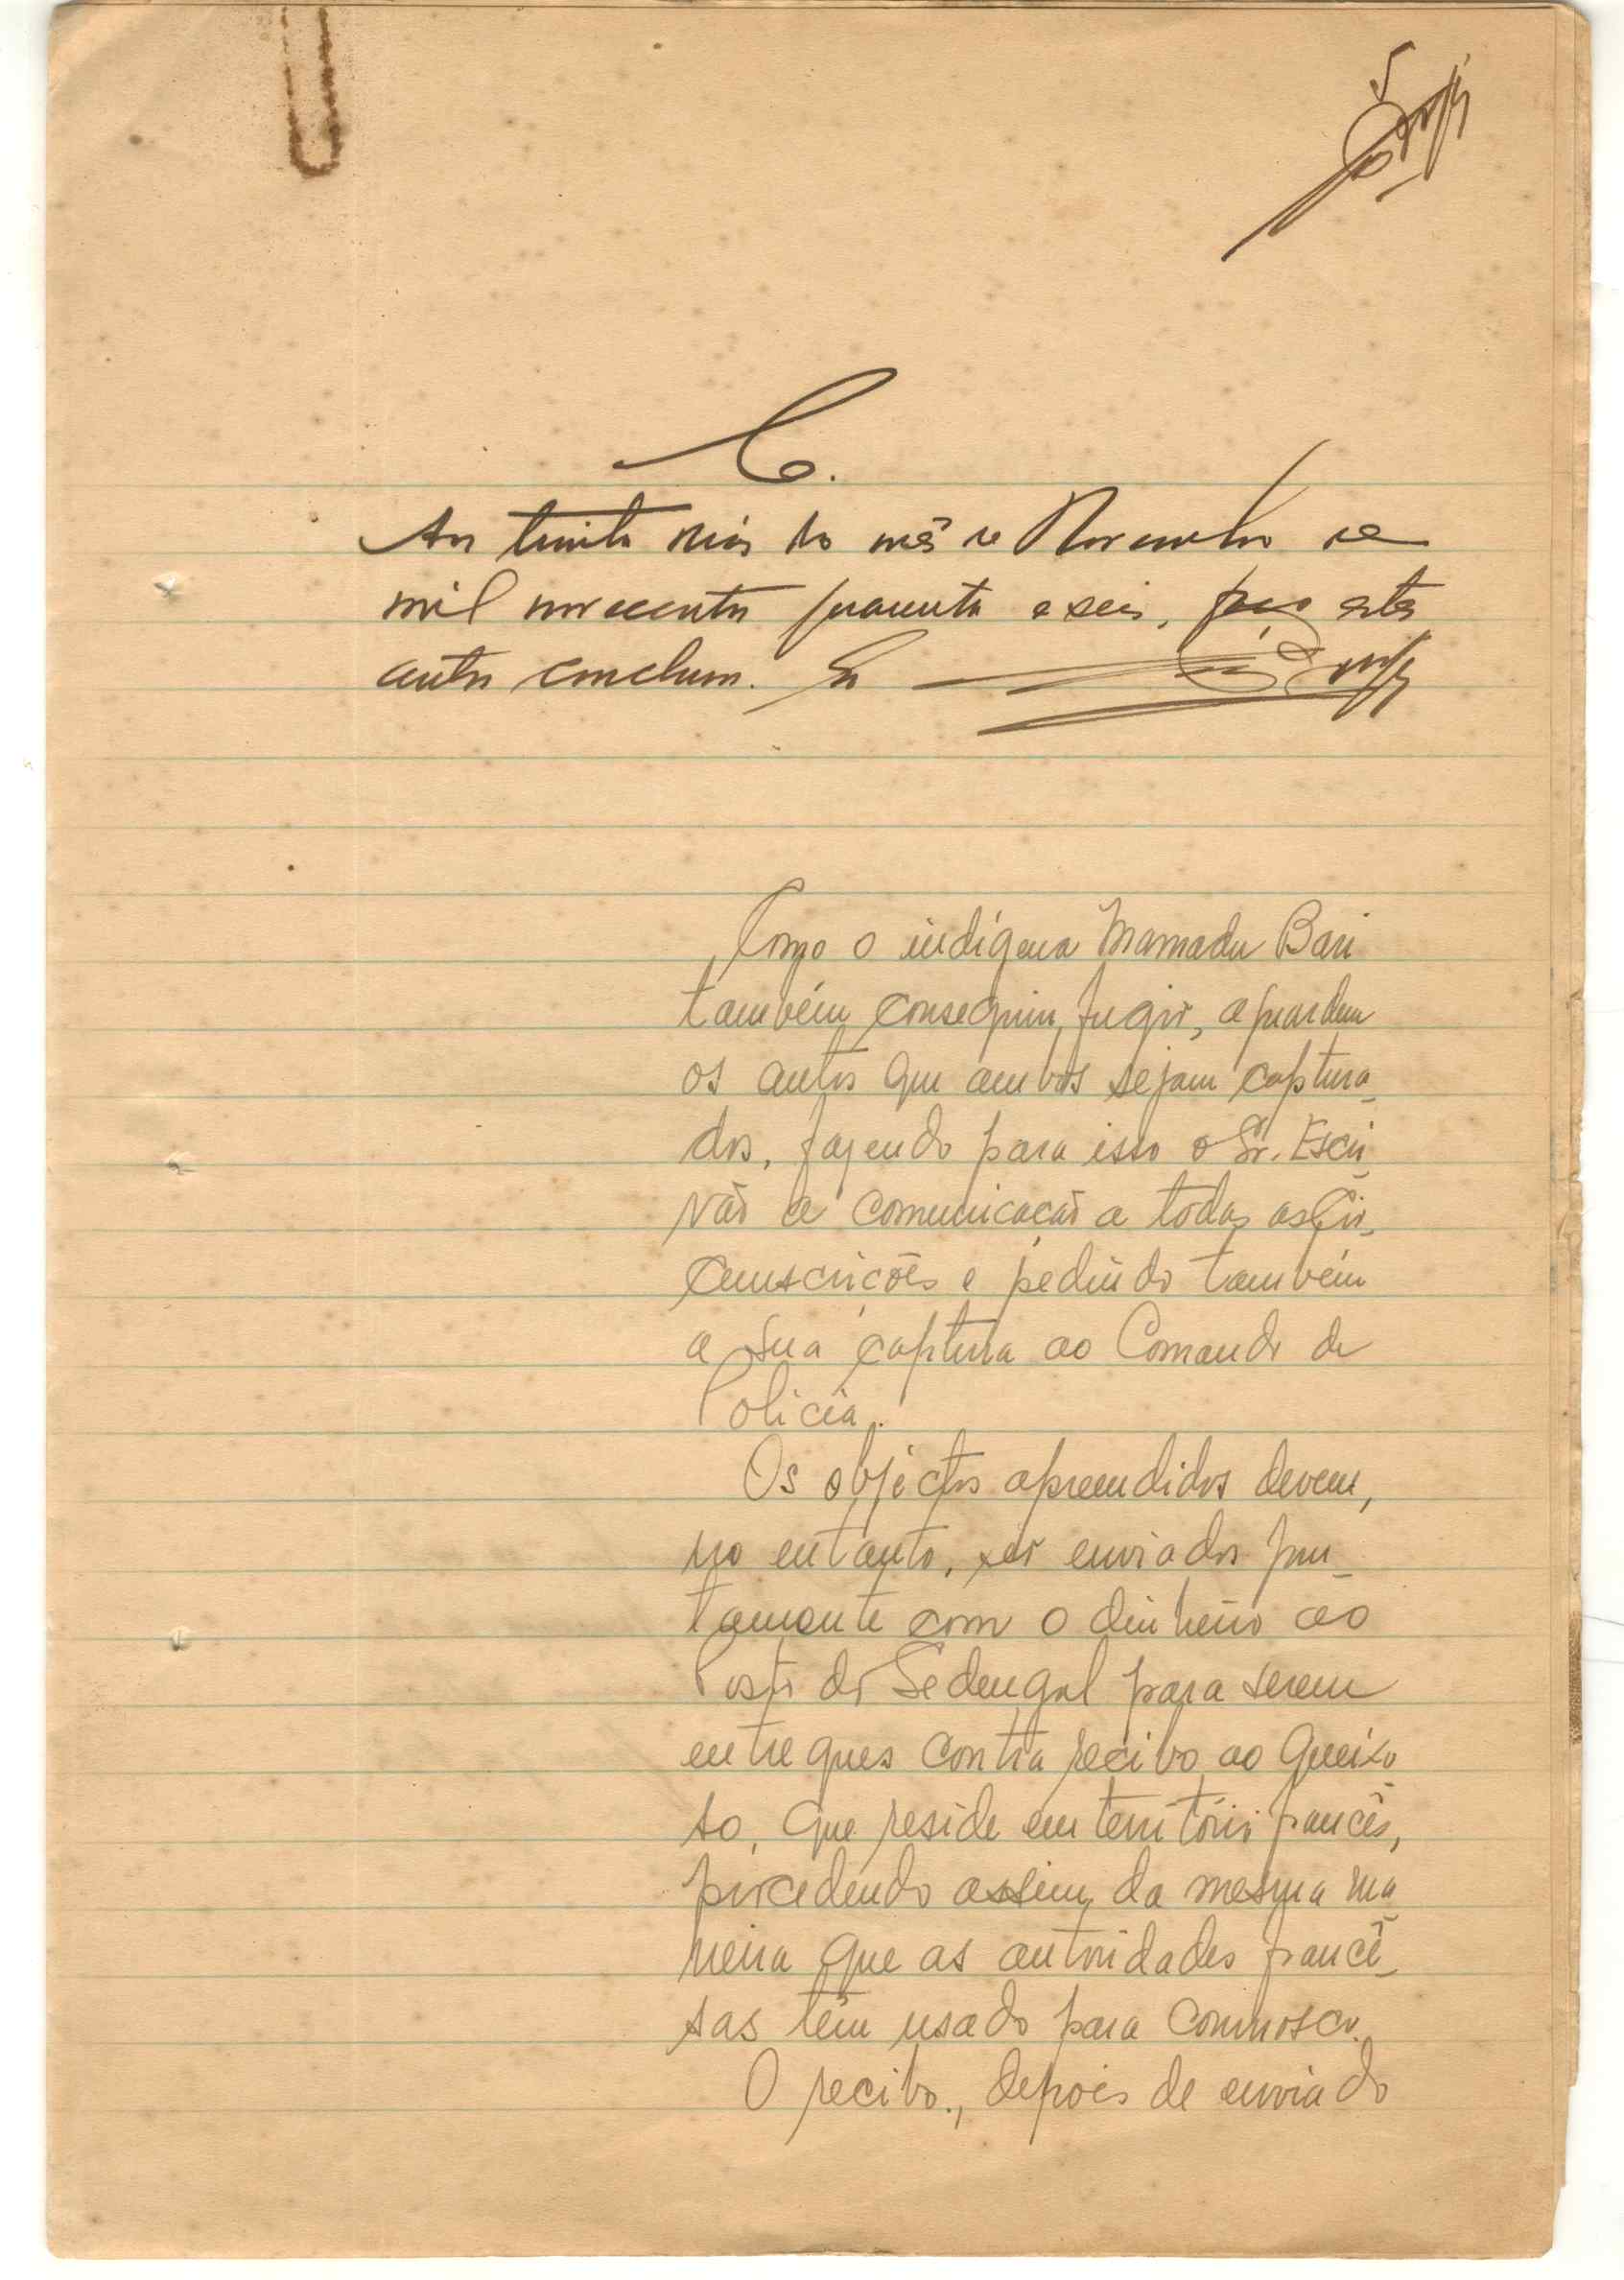 5
C.
Aos trinta dias do mês de Novembro de
mil novecentos quarenta e seis, faço estes
autos conclusos. Eu
Como o indígena Mamadu Bari
também conseguiu fugir, aguardem
os autos que ambos sejam captura_
dos, fazendo para isso o Sr. Escri_
vão a comunicação a todas as Cir_
cunscrições e pedindo também
a sua captura ao Comando de
Polícia.
Os objectos apreendidos devem,
no entanto, ser enviados jun_
tamente com o dinheiro ao
Posto de Sedengal para serem
entregues contra recibo ao queixo
so, que reside em território francês,
procedendo assim da mesma ma_
neira que as autoridades francê_
sas têm usado para connosco.
O recibo, depois de enviado